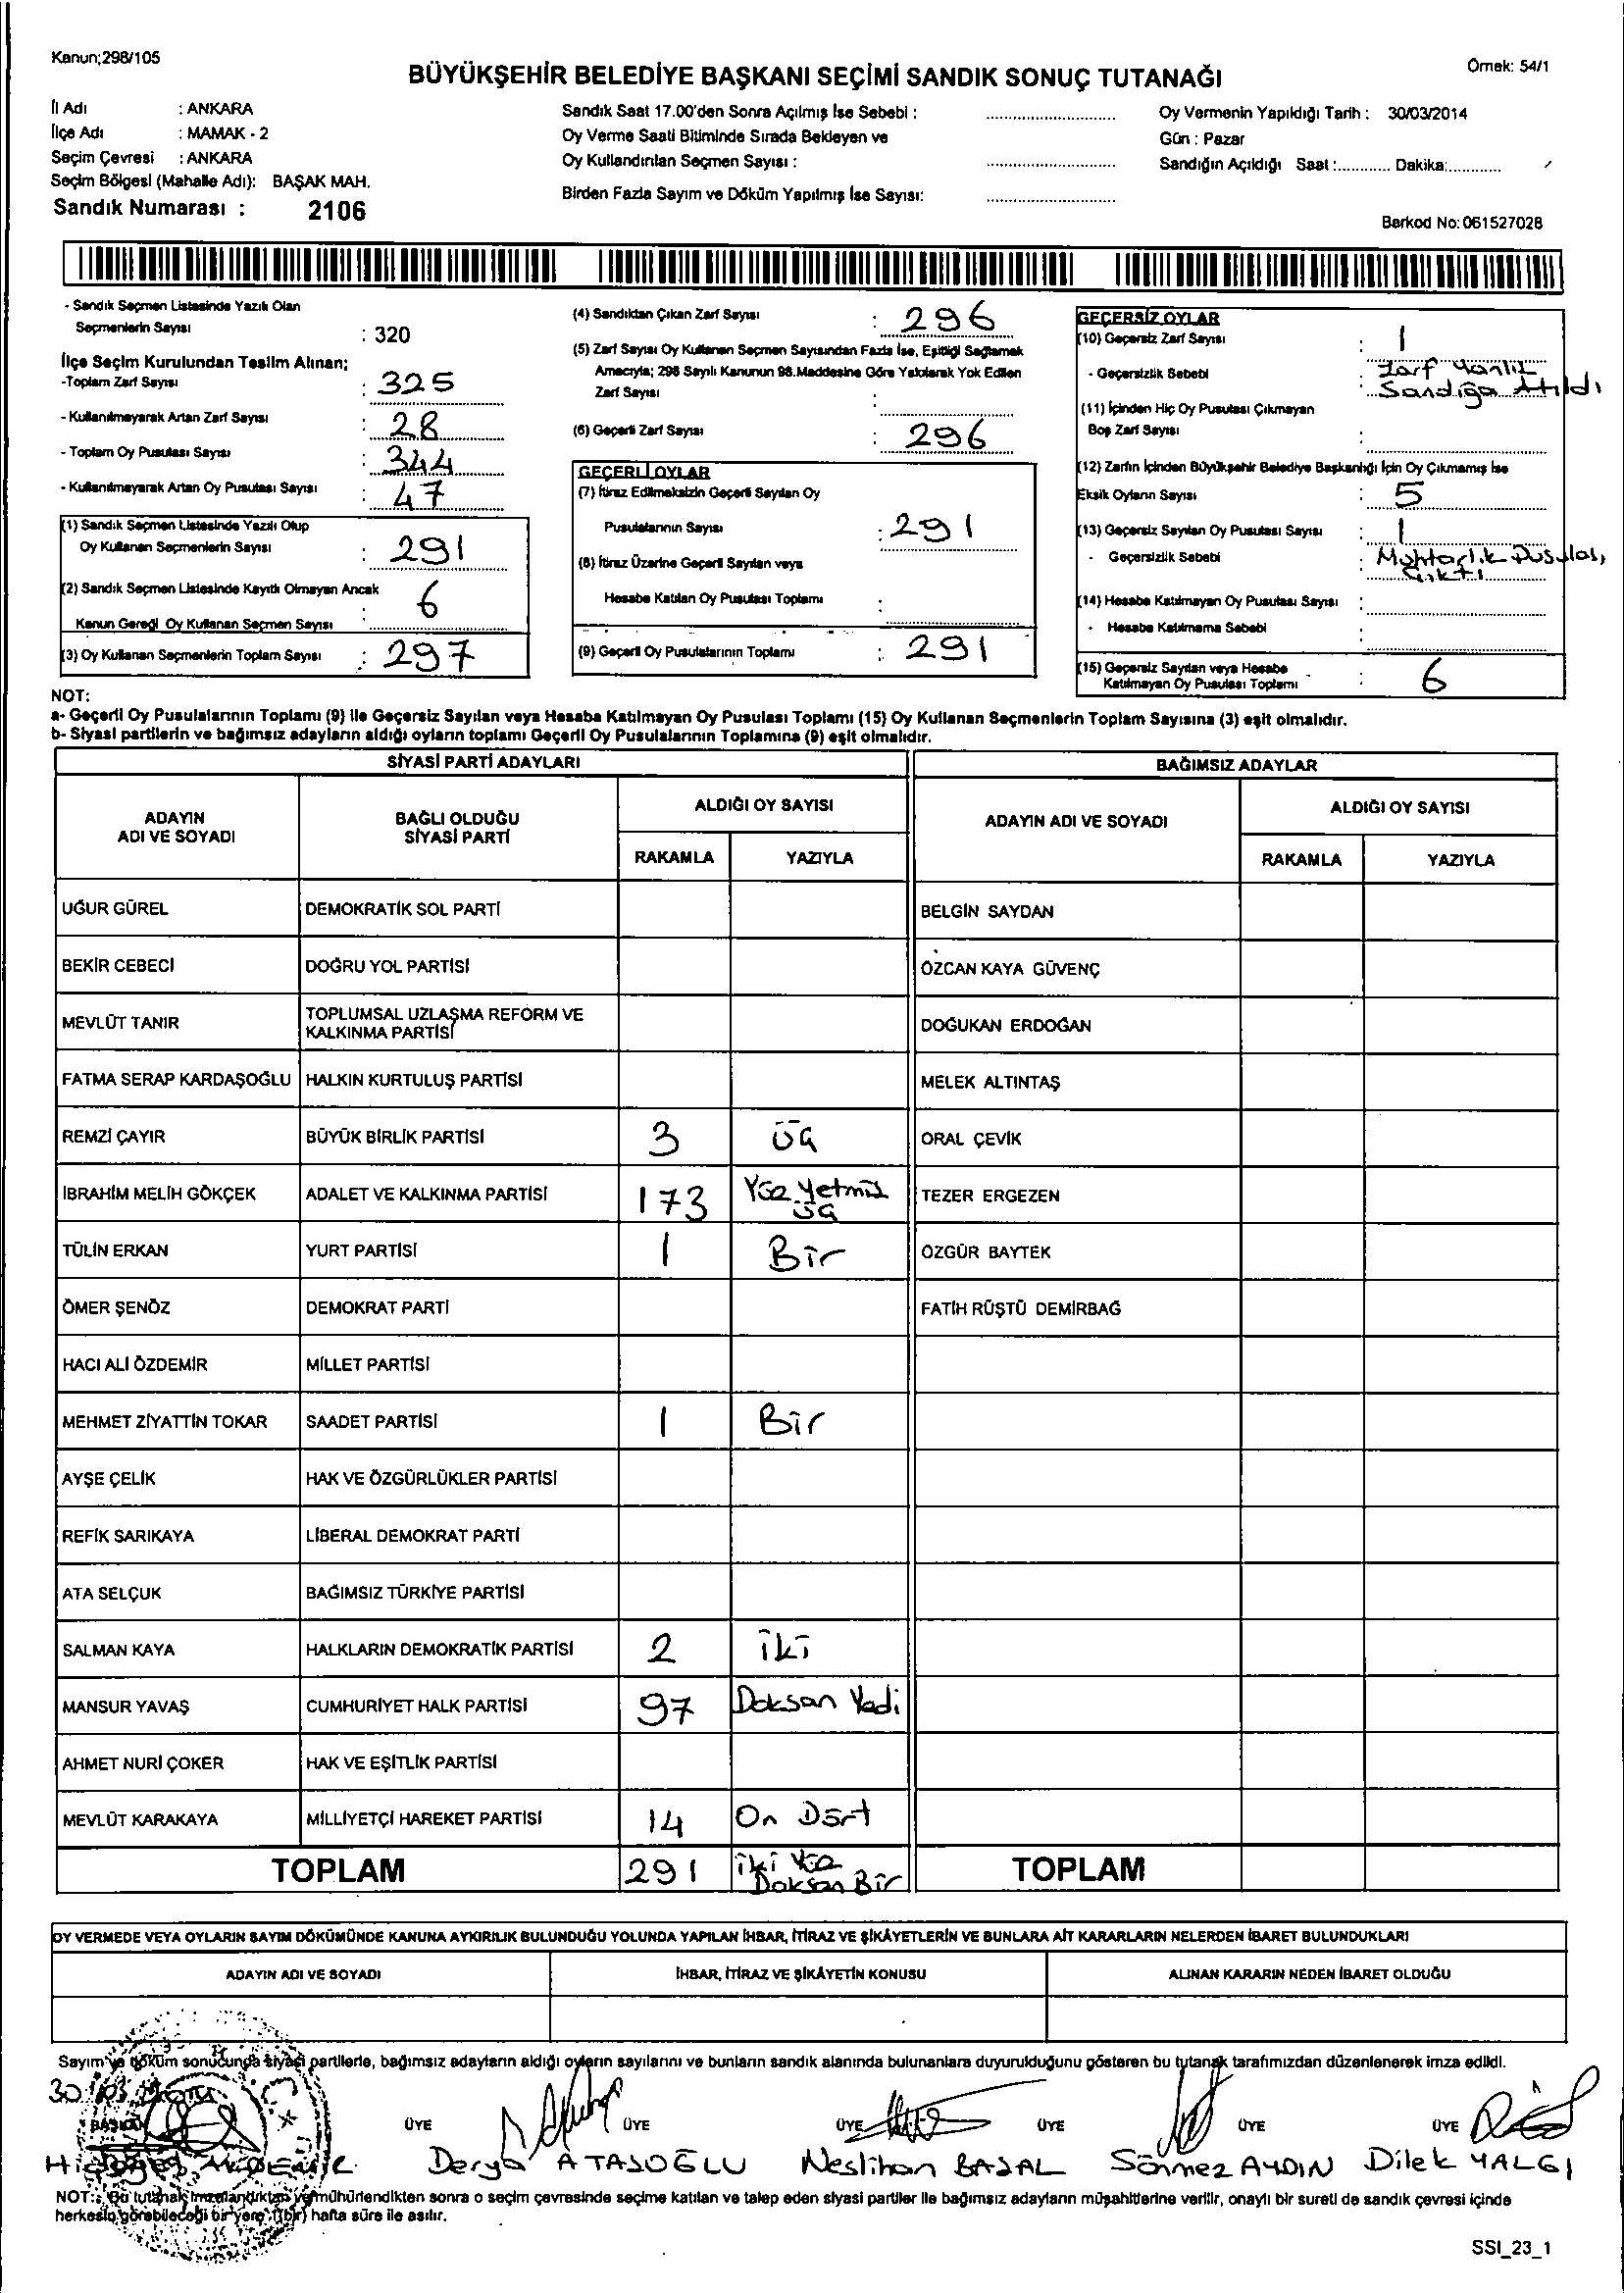 Kanun;298/105
BÜYÜKŞEHİR BELEDİYE BAŞKANI SEÇİMİ SANDIK SONUÇ TUTANAĞI
Örnek: 54/1
İl Adı : ANKARA
İlçe Adı : MAMAK - 2
Seçim Çevresi : ANKARA
Seçim Bölgesi (Mahalle Adı): BAŞAK MAH.
Sandık Numarası : 2106
Sandık Saat 17.00'den Sonra Açılmış İse Sebebi :
Oy Verme Saati Bitiminde Sırada Bekleyen ve
Oy Kullandırılan Seçmen Sayısı :
Birden Fazla Sayım ve Döküm Yapılmış İse Sayısı:
Oy Vermenin Yapıldığı Tarih : 30/03/2014
Gün : Pazar
Sandığın Açıldığı Saat :............ Dakika:............
Barkod No: 061527028
- Sandık Seçmen Listesinde Yazılı Olan
Seçmenlerin Sayısı : 320
İlçe Seçim Kurulundan Teslim Alınan;
-Toplam Zarf Sayısı : 325
- Kullanılmayarak Artan Zarf Sayısı : 28
- Toplam Oy Pusulası Sayısı : 344
- Kullanılmayarak Artan Oy Pusulası Sayısı : 47
(1) Sandık Seçmen Listesinde Yazılı Olup
Oy Kullanan Seçmenlerin Sayısı : 291
(2) Sandık Seçmen Listesinde Kayıtlı Olmayan Ancak
Kanun Gereği Oy Kullanan Seçmen Sayısı : 6
(3) Oy Kullanan Seçmenlerin Toplam Sayısı : 297
(4) Sandıktan Çıkan Zarf Sayısı : 296
(5) Zarf Sayısı Oy Kullanan Seçmen Sayısından Fazla İse, Eşitliği Sağlamak
Amacıyla; 298 Sayılı Kanunun 98.Maddesine Göre Yakılarak Yok Edilen
Zarf Sayısı :
(6) Geçerli Zarf Sayısı : 296
GEÇERLİ OYLAR
(7) İtiraz Edilmeksizin Geçerli Sayılan Oy
Pusulalarının Sayısı : 291
(8) İtiraz Üzerine Geçerli Sayılan veya
Hesaba Katılan Oy Pusulası Toplamı :
(9) Geçerli Oy Pusulalarının Toplamı : 291
GEÇERSİZ OYLAR
(10) Geçersiz Zarf Sayısı : 1
- Geçersizlik Sebebi : Zarf Yanlış
Sandığa Atıldı
(11) İçinden Hiç Oy Pusulası Çıkmayan
Boş Zarf Sayısı :
(12) Zarfın İçinden Büyükşehir Belediye Başkanlığı İçin Oy Çıkmamış İse
Eksik Oyların Sayısı : 5
(13) Geçersiz Sayılan Oy Pusulası Sayısı : 1
- Geçersizlik Sebebi : Muhtarlık Pusulası
Çıktı
(14) Hesaba Katılmayan Oy Pusulası Sayısı :
- Hesaba Katılmama Sebebi :
(15) Geçersiz Sayılan veya Hesaba
Katılmayan Oy Pusulası Toplamı : 6
NOT:
a- Geçerli Oy Pusulalarının Toplamı (9) ile Geçersiz Sayılan veya Hesaba Katılmayan Oy Pusulası Toplamı (15) Oy Kullanan Seçmenlerin Toplam Sayısına (3) eşit olmalıdır.
b- Siyasi partilerin ve bağımsız adayların aldığı oyların toplamı Geçerli Oy Pusulalarının Toplamına (9) eşit olmalıdır.
SİYASİ PARTİ ADAYLARI
BAĞIMSIZ ADAYLAR
ADAYIN ADI VE SOYADI
BAĞLI OLDUĞU SİYASİ PARTİ
ALDIĞI OY SAYISI
RAKAMLA YAZIYLA
ADAYIN ADI VE SOYADI
ALDIĞI OY SAYISI
RAKAMLA YAZIYLA
UĞUR GÜREL DEMOKRATİK SOL PARTİ BELGİN SAYDAN
BEKİR CEBECİ DOĞRU YOL PARTİSİ ÖZCAN KAYA GÜVENÇ
MEVLÜT TANIR TOPLUMSAL UZLAŞMA REFORM VE KALKINMA PARTİSİ DOĞUKAN ERDOĞAN
FATMA SERAP KARDAŞOĞLU HALKIN KURTULUŞ PARTİSİ MELEK ALTINTAŞ
REMZİ ÇAYIR BÜYÜK BİRLİK PARTİSİ 3 Üç ORAL ÇEVİK
İBRAHİM MELİH GÖKÇEK ADALET VE KALKINMA PARTİSİ 173 Yüz Yetmiş üç TEZER ERGEZEN
TÜLİN ERKAN YURT PARTİSİ 1 Bir ÖZGÜR BAYTEK
ÖMER ŞENÖZ DEMOKRAT PARTİ FATİH RÜŞTÜ DEMİRBAĞ
HACI ALİ ÖZDEMİR MİLLET PARTİSİ
MEHMET ZİYATTİN TOKAR SAADET PARTİSİ 1 Bir
AYŞE ÇELİK HAK VE ÖZGÜRLÜKLER PARTİSİ
REFİK SARIKAYA LİBERAL DEMOKRAT PARTİ
ATA SELÇUK BAĞIMSIZ TÜRKİYE PARTİSİ
SALMAN KAYA HALKLARIN DEMOKRATİK PARTİSİ 2 iki
MANSUR YAVAŞ CUMHURİYET HALK PARTİSİ 97 Doksan Yedi
AHMET NURİ ÇOKER HAK VE EŞİTLİK PARTİSİ
MEVLÜT KARAKAYA MİLLİYETÇİ HAREKET PARTİSİ 14 On Dört
TOPLAM 291 iki Yüz Doksan Bir TOPLAM
OY VERMEDE VEYA OYLARIN SAYIM DÖKÜMÜNDE KANUNA AYKIRILIK BULUNDUĞU YOLUNDA YAPILAN İHBAR, İTİRAZ VE ŞİKÂYETLERİN VE BUNLARA AİT KARARLARIN NELERDEN İBARET BULUNDUKLARI
ADAYIN ADI VE SOYADI İHBAR, İTİRAZ VE ŞİKÂYETİN KONUSU ALINAN KARARIN NEDEN İBARET OLDUĞU
Sayım ve döküm sonucunda siyasi partilerle, bağımsız adayların aldığı oyların sayılarını ve bunların sandık alanında bulunanlara duyurulduğunu gösteren bu tutanak tarafımızdan düzenlenerek imza edildi.
30/03/2014
BAŞKAN ÜYE ÜYE ÜYE ÜYE ÜYE ÜYE
Derya ATASOĞLU Neslihan BASAL Sönmez AYDIN Dilek YALGI
NOT: Bu tutanak imzalandıktan ve mühürlendikten sonra o seçim çevresinde seçime katılan ve talep eden siyasi partiler ile bağımsız adayların müşahitlerine verilir, onaylı bir sureti de sandık çevresi içinde
herkesin görebileceği bir yere 1(bir) hafta süre ile asılır.
SSI_23_1